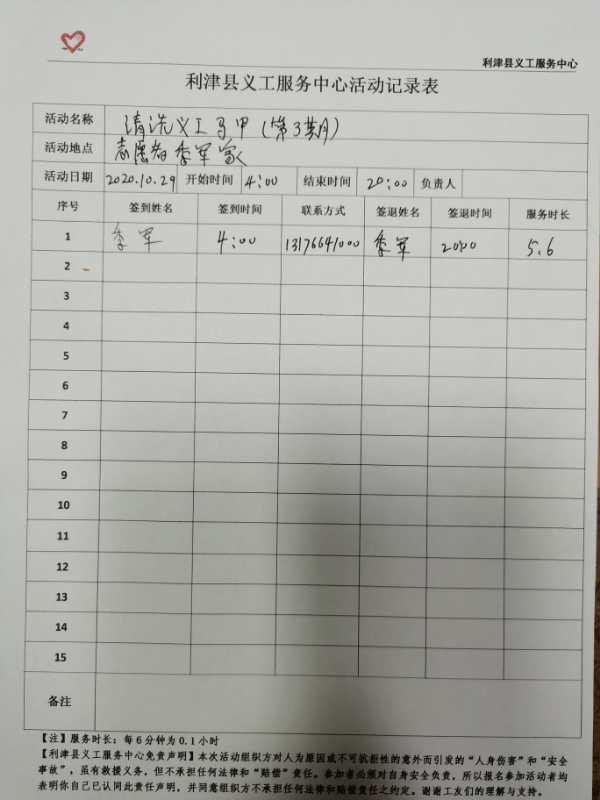 利津县义工服务中心
利津县义工服务中心活动记录表
活动名称 清洗义工马甲(第3期)
活动地点 志愿者李军家
活动日期 2020.10.29 开始时间 4:00 结束时间 20:00 负责人
序号 签到姓名 签到时间 联系方式 签退姓名 签退时间 服务时长
1 李军 4:00 13176641000 李军 2000 5.6
2
3
4
5
6
7
8
9
10
11
12
13
14
15
备注
【注】服务时长:每6分钟为0.1小时
【利津县义工服务中心免责声明】本次活动组织方对人为原因或不可抗拒性的意外而引发的“人身伤害”和“安全
事故”,虽有救援义务,但不承担任何法律和“赔偿”责任。参加者必须对自身安全负责,所以报名参加活动者均
表明你自己已认同此责任声明,并同意组织方不承担任何法律和赔偿责任之约定。谢谢工友们的理解与支持。